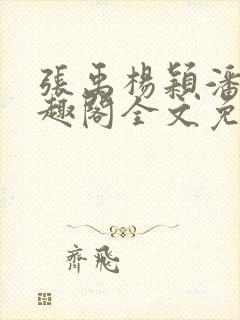 張禹楊穎潘
趣閣全文免
齊飛